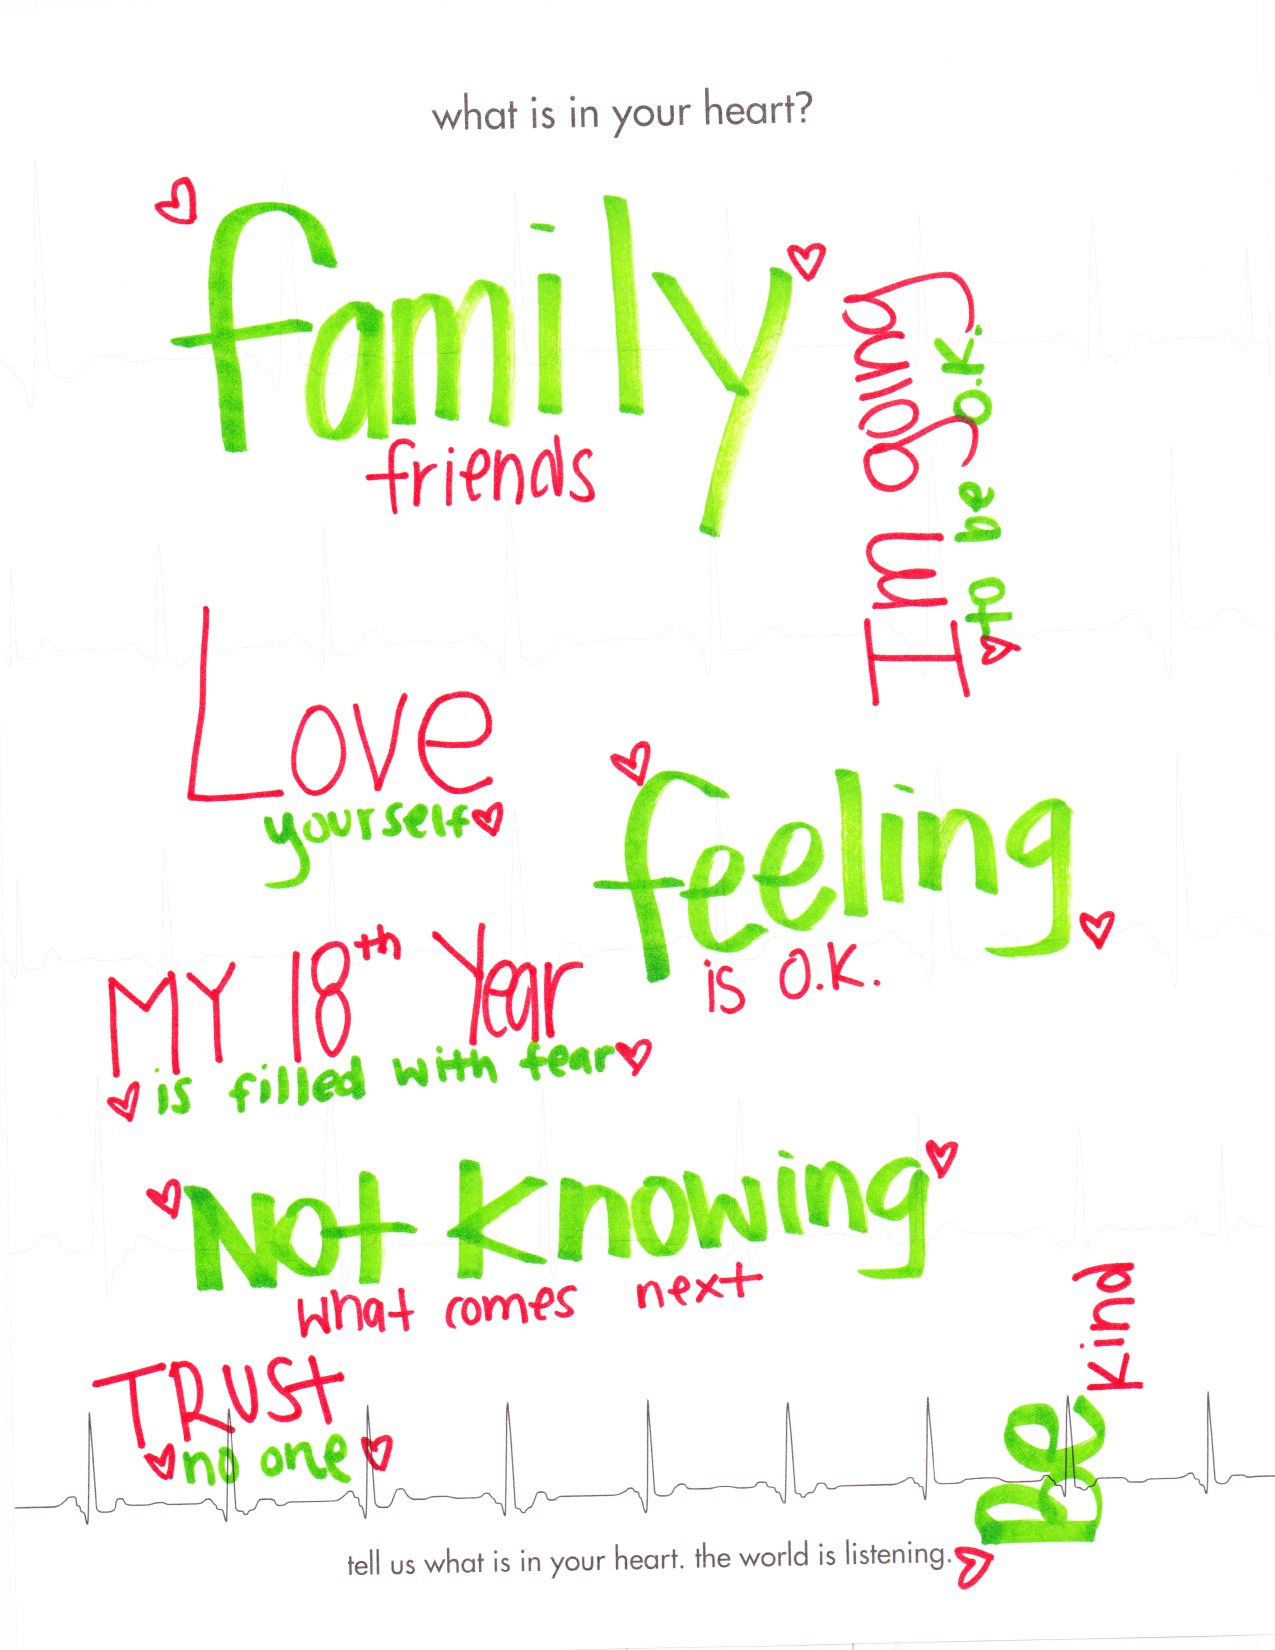 what is in your heart?
family
friends
Im going
to be O.K.
Love
yourself
feeling
is O.K.
MY 18th Year
is filled with fear
Not Knowing
what comes next
TRUST
no one
Be
Kind
tell us what is in your heart. the world is listening.